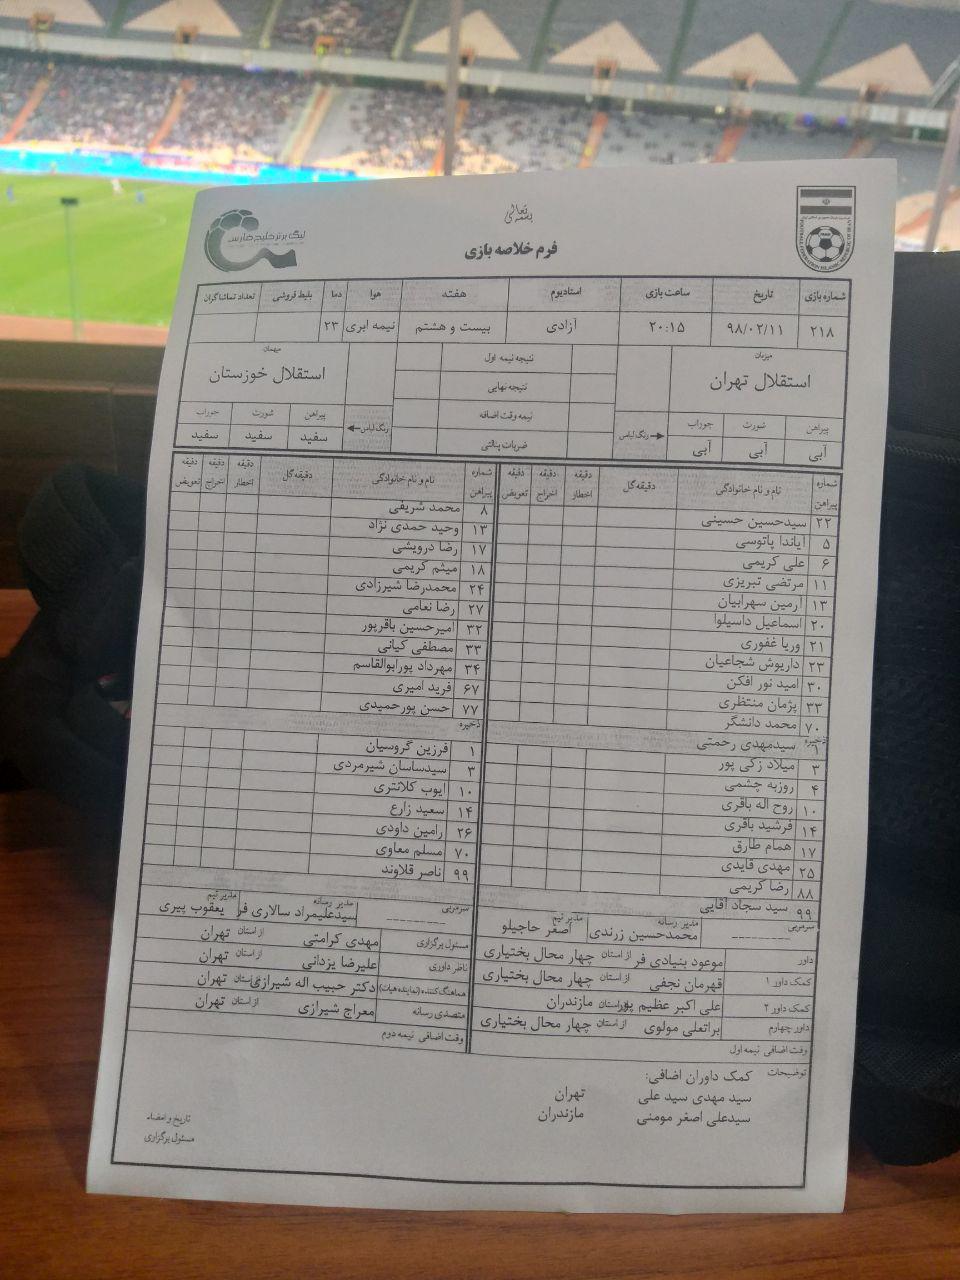 بسمه تعالی
لیگ برتر خلیج فارس
فرم خلاصه بازی
شماره بازی تاریخ ساعت بازی استادیوم هفته هوا دما بلیط فروشی تعداد تماشاگران
۲۱۸ ۹۸/۰۲/۱۱ ۲۰:۱۵ آزادی بیست و هشتم نیمه ابری ۲۳
میزبان
استقلال تهران
پیراهن شورت جوراب
آبی آبی آبی
رنگ لباس
نتیجه نیمه اول
نتیجه نهایی
نیمه وقت اضافه
ضربات پنالتی
میهمان
استقلال خوزستان
رنگ لباس
پیراهن شورت جوراب
سفید سفید سفید
شماره پیراهن نام و نام خانوادگی دقیقه گل دقیقه اخطار دقیقه اخراج دقیقه تعویض
۲۲ سیدحسین حسینی
۵ ایاندا پاتوسی
۶ علی کریمی
۱۱ مرتضی تبریزی
۱۳ آرمین سهرابیان
۲۰ اسماعیل داسیلوا
۲۱ وریا غفوری
۲۳ داریوش شجاعیان
۳۰ امید نور افکن
۳۳ پژمان منتظری
۷۰ محمد دانشگر
ذخیره
۱ سیدمهدی رحمتی
۳ میلاد زکی پور
۴ روزبه چشمی
۱۰ روح اله باقری
۱۴ فرشید باقری
۱۷ همام طارق
۲۵ مهدی قایدی
۸۸ رضا کریمی
۹۹ سید سجاد آقایی
سرمربی ---------- مدیر رسانه محمدحسین زرندی مدیر تیم اصغر حاجیلو
شماره پیراهن نام و نام خانوادگی دقیقه گل دقیقه اخطار دقیقه اخراج دقیقه تعویض
۸ محمد شریفی
۱۳ وحید حمدی نژاد
۱۷ رضا درویشی
۱۸ میثم کریمی
۲۴ محمدرضا شیرزادی
۲۷ رضا نعامی
۳۲ امیرحسین باقرپور
۳۳ مصطفی کیانی
۳۴ مهرداد پورابوالقاسم
۶۷ فرید امیری
۷۷ حسن پورحمیدی
ذخیره
۱ فرزین گروسیان
۳ سیدساسان شیرمردی
۱۰ ایوب کلانتری
۱۴ سعید زارع
۲۶ رامین داودی
۷۰ مسلم معاوی
۹۹ ناصر قلاوند
سرمربی ---------- مدیر رسانه سیدعلیمراد سالاری فر مدیر تیم یعقوب پیری
داور موعود بنیادی فر از استان چهار محال بختیاری
کمک داور ۱ قهرمان نجفی از استان چهار محال بختیاری
کمک داور ۲ علی اکبر عظیم پور از استان مازندران
داور چهارم براتعلی مولوی از استان چهار محال بختیاری
وقت اضافی نیمه اول
مسئول برگزاری مهدی کرامتی از استان تهران
ناظر داوری علیرضا یزدانی از استان تهران
هماهنگ کننده (نماینده هیات) دکتر حبیب اله شیرازی از استان تهران
متصدی رسانه معراج شیرازی از استان تهران
وقت اضافی نیمه دوم
توضیحات
کمک داوران اضافی:
سید مهدی سید علی تهران
سیدعلی اصغر مومنی مازندران
تاریخ و امضاء
مسئول برگزاری